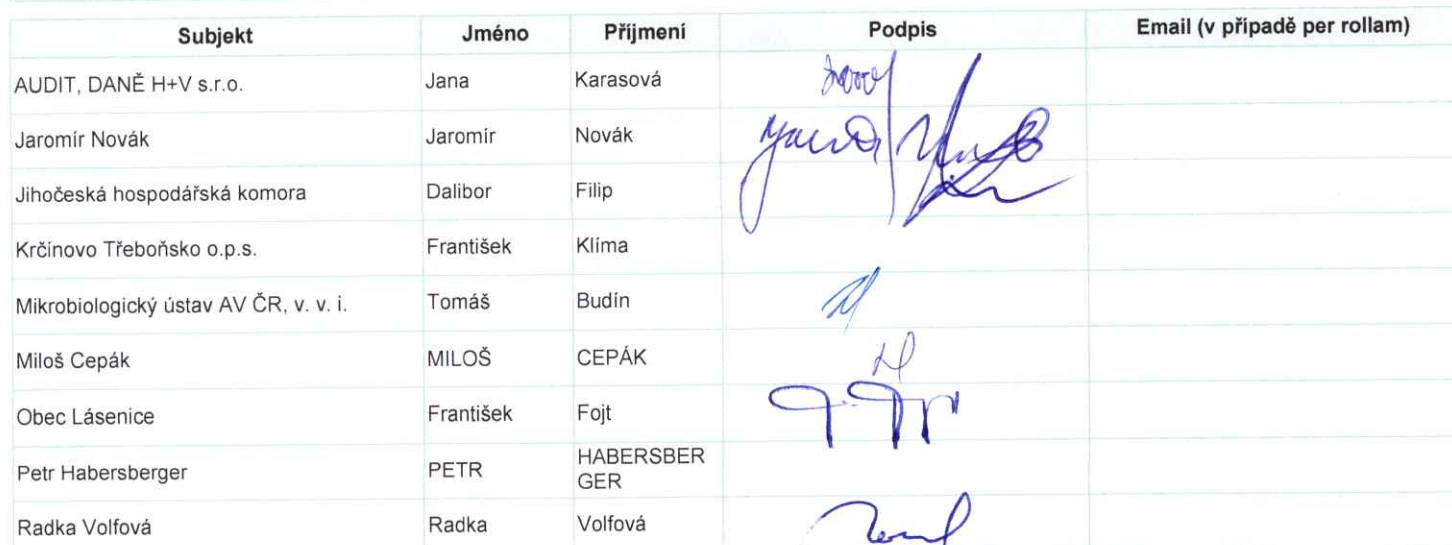 Subjekt Jméno Příjmení Podpis Email (v případě per rollam)
AUDIT, DANĚ H+V s.r.o. Jana Karasová
Jaromír Novák Jaromír Novák
Jihočeská hospodářská komora Dalibor Filip
Krčínovo Třeboňsko o.p.s. František Klíma
Mikrobiologický ústav AV ČR, v. v. i. Tomáš Budín
Miloš Cepák MILOŠ CEPÁK
Obec Lásenice František Fojt
Petr Habersberger PETR HABERSBER
GER
Radka Volfová Radka Volfová